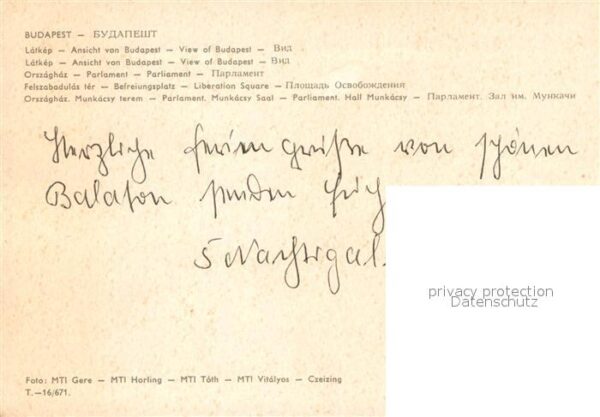 BUDAPEST — БУДАПЕШТ
Látkép — Ansicht von Budapest — View of Budapest — Вид
Látkép — Ansicht von Budapest — View of Budapest — Вид
Országház — Parlament — Parliament — Парламент
Felszabadulás tér — Befreiungsplatz — Liberation Square — Площадь Освобождения
Országház. Munkácsy terem — Parlament. Munkácsy Saal — Parliament. Hall Munkácsy — Парламент. Зал им. Мункачи
Herzliche Feriengrüße von schönen
Balaton senden Euch
5 Nachtigal.
privacy protection
Datenschutz
Foto: MTI Gere — MTI Horling — MTI Tóth — MTI Vitályos — Czeizing
T.—16/671.